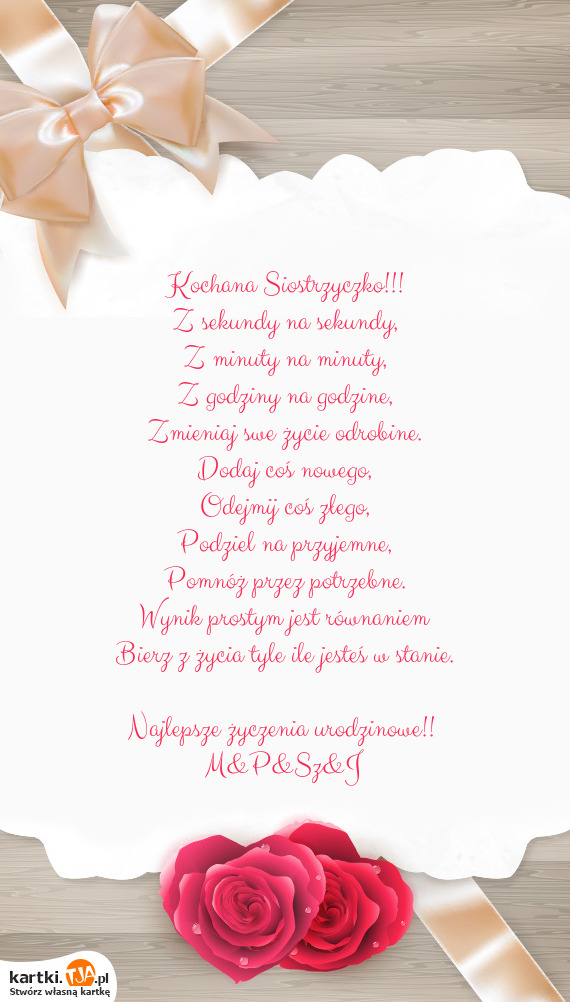 Kochana Siostrzyczko!!!
Z sekundy na sekundy,
Z minuty na minuty,
Z godziny na godzine,
Zmieniaj swe życie odrobine.
Dodaj coś nowego,
Odejmij coś złego,
Podziel na przyjemne,
Pomnóż przez potrzebne.
Wynik prostym jest równaniem
Bierz z życia tyle ile jesteś w stanie.
Najlepsze życzenia urodzinowe!!
M&P&Sz&J
kartki.TJA.pl
Stwórz własną kartkę